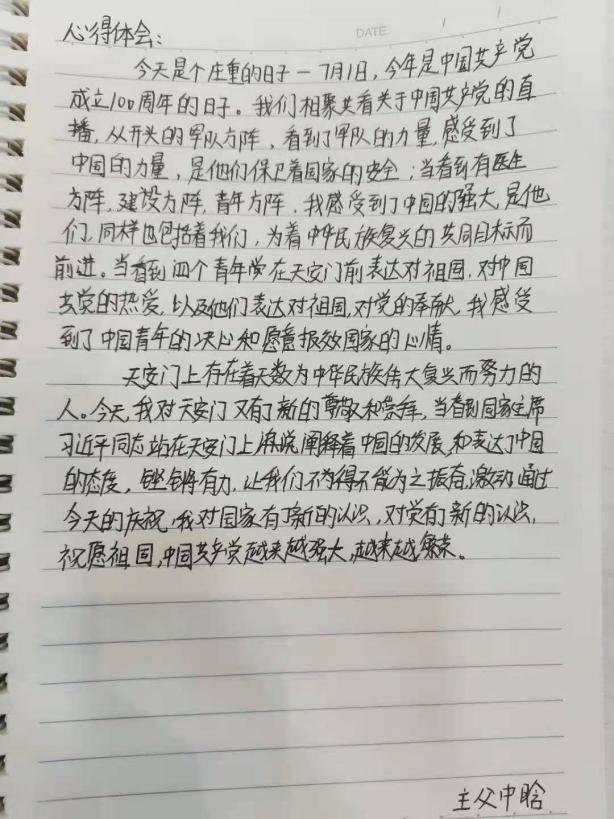 DATE
心得体会：
今天是个庄重的日子－7月1日，今年是中国共产党
成立100周年的日子。我们相聚共看关于中国共产党的直
播，从开头的军队方阵，看到了军队的力量，感受到了
中国的力量，是他们保卫着国家的安全；当看到有医生
方阵，建设方阵，青年方阵，我感受到了中国的强大，是他
们，同样也包括着我们，为着中华民族复兴的共同目标而
前进。当看到四个青年党在天安门前表达对祖国，对中国
共党的热爱，以及他们表达对祖国，对党的奉献，我感受
到了中国青年的决心和愿意报效国家的心情。
天安门上存在着无数为中华民族伟大复兴而努力的
人。今天，我对天安门又有了新的尊敬和崇拜，当看到国家主席
习近平同志站在天安门上，阐释着中国的发展，和表达了中国
的态度，铿锵有力，让我们不得不能为之振奋，激动通过
今天的庆祝，我对国家有了新的认识，对党有了新的认识，
祝愿祖国，中国共产党越来越强大，越来越繁荣。
主父中晗